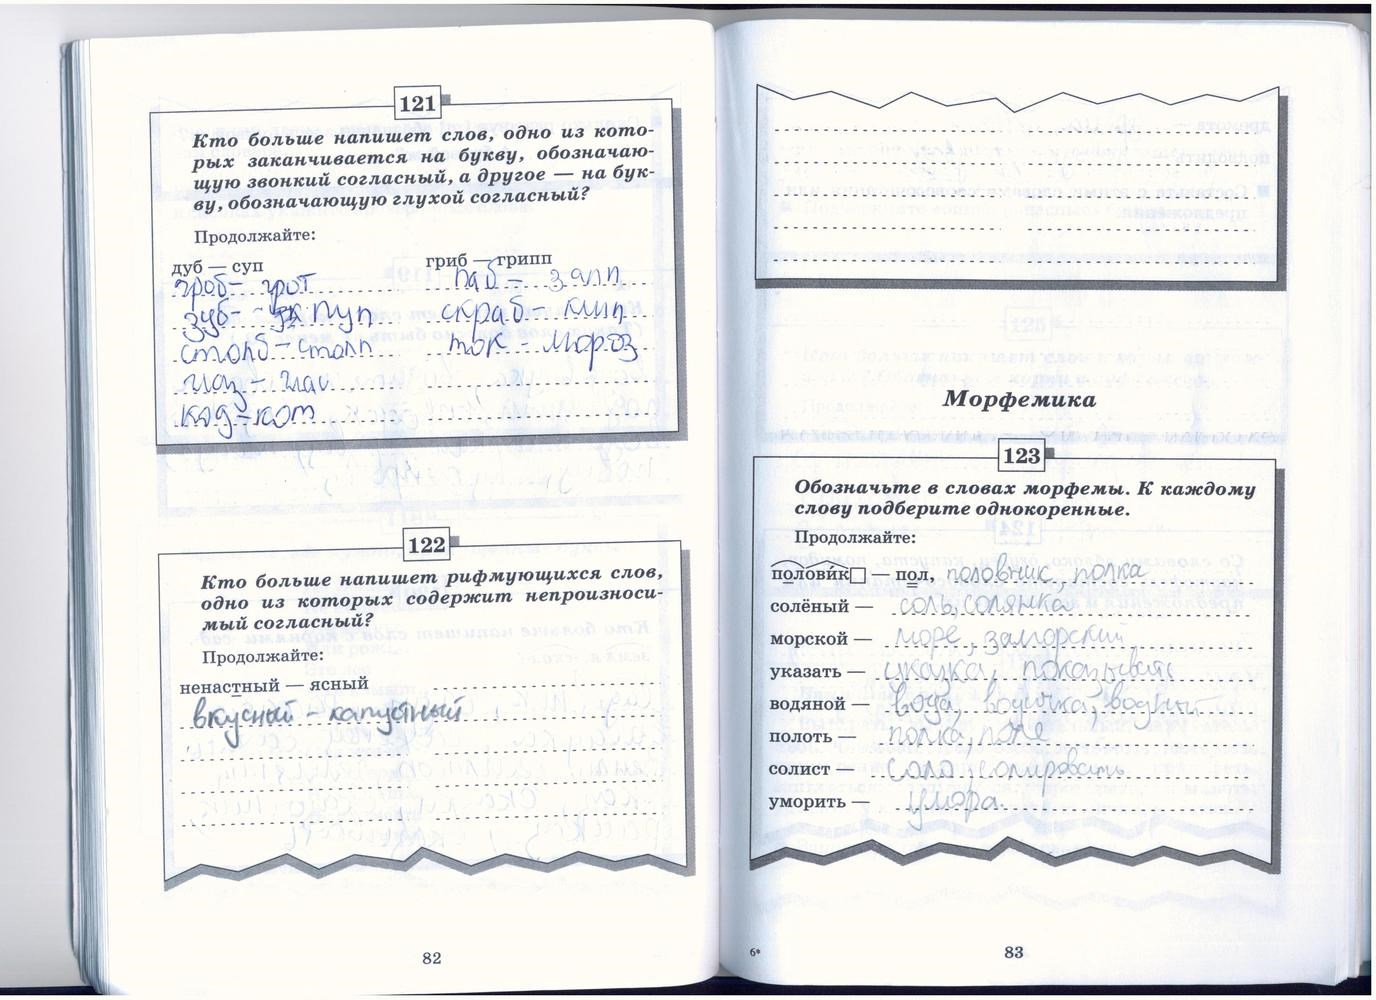 121
Кто больше напишет слов, одно из кото-
рых заканчивается на букву, обозначаю-
щую звонкий согласный, а другое — на бук-
ву, обозначающую глухой согласный?
Продолжайте:
дуб — суп гриб — грипп
гроб – грот паб – залп
зуб – пуп скраб – клип
столб – столп ток – мороз
глаз – глас
код – кот
122
Кто больше напишет рифмующихся слов,
одно из которых содержит непроизноси-
мый согласный?
Продолжайте:
ненастный — ясный
вкусный – капустный
82
Морфемика
123
Обозначьте в словах морфемы. К каждому
слову подберите однокоренные.
Продолжайте:
половик — пол, половник, полка
солёный — соль, солянка
морской — море, заморский
указать — указка, показывать
водяной — вода, водичка, водный
полоть — полка, поле
солист — соло, солировать
уморить — умора
6*
83